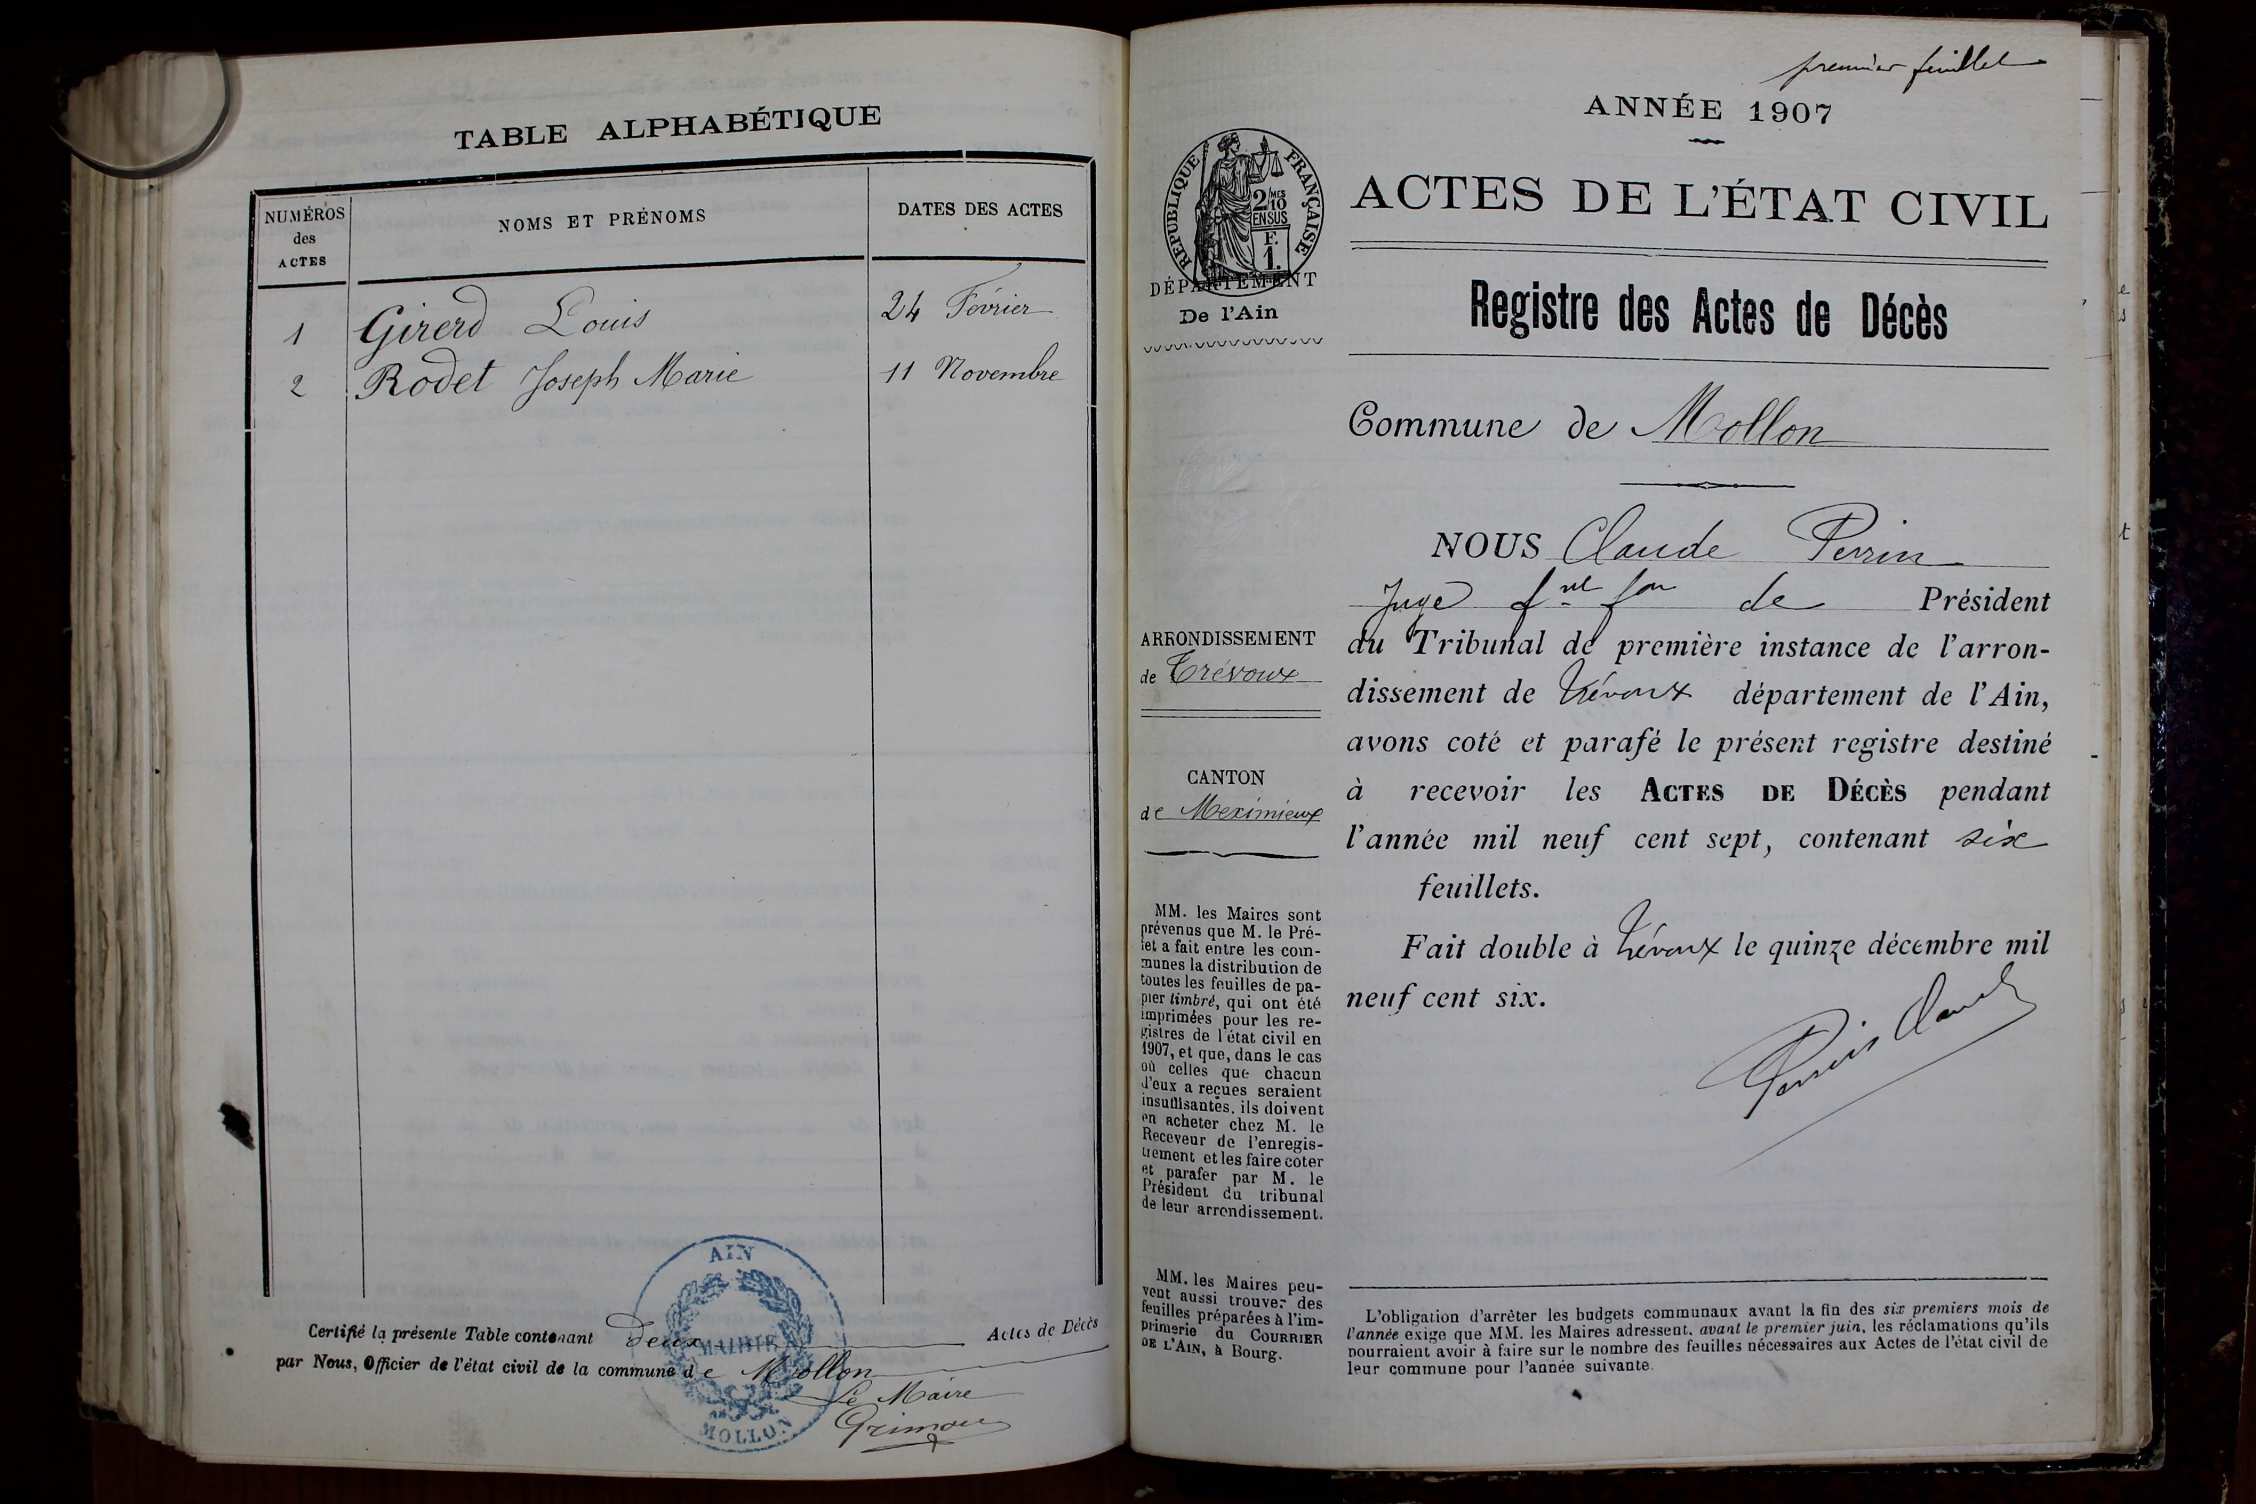 TABLE ALPHABÉTIQUE
NUMÉROS
des
ACTES
NOMS ET PRÉNOMS
DATES DES ACTES
1 Girerd Louis 24 Février
2 Rodet Joseph Marie 11 Novembre
Certifié la présente Table contenant deux Actes de Décès
par Nous, Officier de l'état civil de la commune de Mollon
Le Maire
AIN
MAIRIE
MOLLON
premier feuillet
ANNÉE 1907
ACTES DE L'ÉTAT CIVIL
Registre des Actes de Décès
RÉPUBLIQUE FRANÇAISE
2 MES
10
EN SUS
F.
1.
DÉPARTEMENT
De l'Ain
Commune de Mollon
NOUS Claude Perrin
Juge de Président
du Tribunal de première instance de l'arron-
dissement de Trévoux département de l'Ain,
avons coté et parafé le présent registre destiné
à recevoir les ACTES DE DÉCÈS pendant
l'année mil neuf cent sept, contenant six
feuillets.
Fait double à Trévoux le quinze décembre mil
neuf cent six.
Perrin Claude
ARRONDISSEMENT
de Trévoux
CANTON
de Meximieux
MM. les Maires sont
prévenus que M. le Pré-
fet a fait entre les com-
munes la distribution de
toutes les feuilles de pa-
pier timbré, qui ont été
imprimées pour les re-
gistres de l'état civil en
1907, et que, dans le cas
où celles que chacun
d'eux a reçues seraient
insuffisantes, ils doivent
en acheter chez M. le
Receveur de l'enregis-
trement et les faire coter
et parafer par M. le
Président du tribunal
de leur arrondissement.
MM. les Maires peu-
vent aussi trouver des
feuilles préparées à l'im-
primerie du COURRIER
DE L'AIN, à Bourg.
L'obligation d'arrêter les budgets communaux avant la fin des six premiers mois de
l'année exige que MM. les Maires adressent, avant le premier juin, les réclamations qu'ils
pourraient avoir à faire sur le nombre des feuilles nécessaires aux Actes de l'état civil de
leur commune pour l'année suivante.